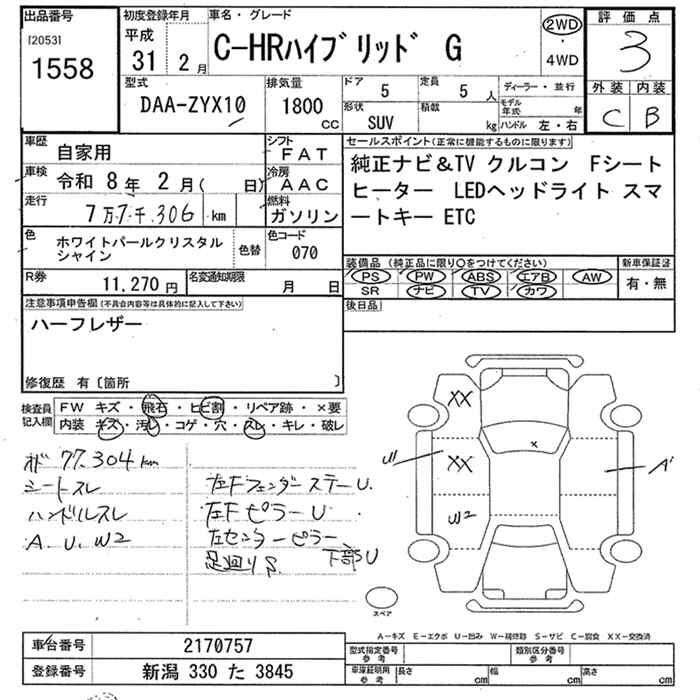 出品番号
[2053]
1558
初度登録年月
平成
31 2月
車名・グレード
C-HRハイブリッド G
2WD
・
4WD
評価点
3
外装 内装
C B
型式
DAA-ZYX10
排気量
1800
CC
ドア
5
定員
5 人
形状
SUV
積載
kg
ディーラー・並行
モデル
年式 年
ハンドル 左・右
車歴
自家用
シフト
FAT
車検
令和 8年 2月( 日)
冷房
AAC
走行
7万7千306 km
燃料
ガソリン
色
ホワイトパールクリスタル
シャイン
色替
色コード
070
R券
11,270円
名変通知期限
月 日
セールスポイント(正常に機能するものに限ります)
純正ナビ&TV クルコン Fシート
ヒーター LEDヘッドライト スマ
ートキー ETC
装備品 (純正品に限り○をつけてください)
PS PW ABS エアB AW
SR ナビ TV カワ
新車保証書
有・無
後日品
注意事項申告欄(不具合内容等は具体的に記入して下さい)
ハーフレザー
修復歴 有〔箇所 〕
検査員
記入欄
FW キズ・飛石・ヒビ割・リペア跡・×要
内装 キズ・汚レ・コゲ・穴・スレ・キレ・破レ
77,304km
シートスレ
ハンドルスレ
A. U. W2
左Fフェンダーステー U.
左F ピラー U
左センターピラー
下部U
足廻り S.
XX
XX
W2
×
スペア
A-キズ E-エクボ U-凹み W-補修跡 S-サビ C-腐食 XX-交換済
車台番号
2170757
登録番号
新潟 330 た 3845
型式指定番号
参考
類別区分番号
参考
車庫証明用
参考
長さ cm
幅 cm
高さ cm